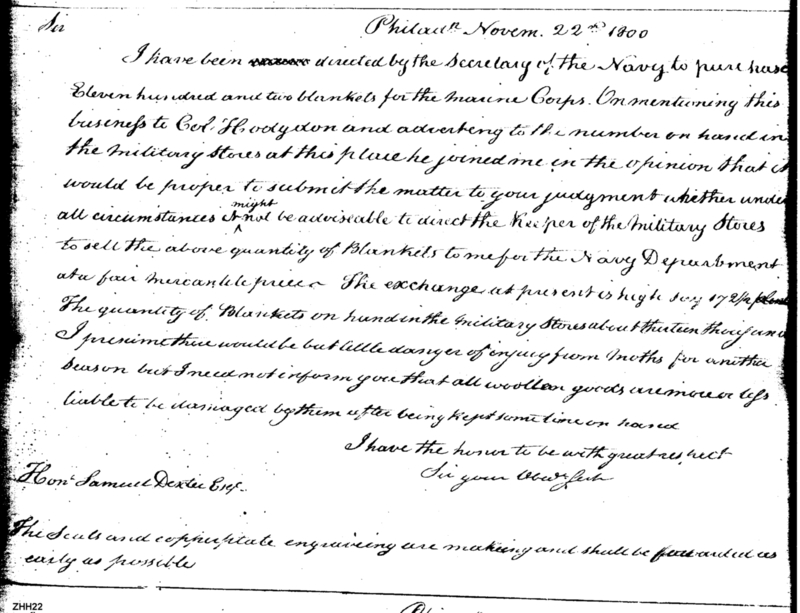 Sir
Philadª Novem. 22nd 1800
I have been directed by the Secretary of the Navy to purchase
Eleven hundred and two blankets for the Marine Corps. On mentioning this
business to Col. Hodgdon and adverting to the number on hand in
the Military Stores at this place he joined me in the opinion that it
would be proper to submit the matter to your judgment whether under
might
all circumstances it not be adviseable to direct the Keeper of the Military Stores
to sell the above quantity of Blankets to me for the Navy Department
at a fair mercantile price The exchange at present is high say 172½
The quantity of Blankets on hand in the Military Stores about thirteen thousand
I presume there would be but little danger of injury from Moths for another
Season but I need not inform you that all woollen goods are more or less
liable to be damaged by them after being kept some time on hand
I have the honor to be with great respect
Sir your Obedt Servt
Honl Samuel Dexter Esqr.
The Seals and copperplate engraveing are making and shall be forwarded as
early as possible
ZHH22